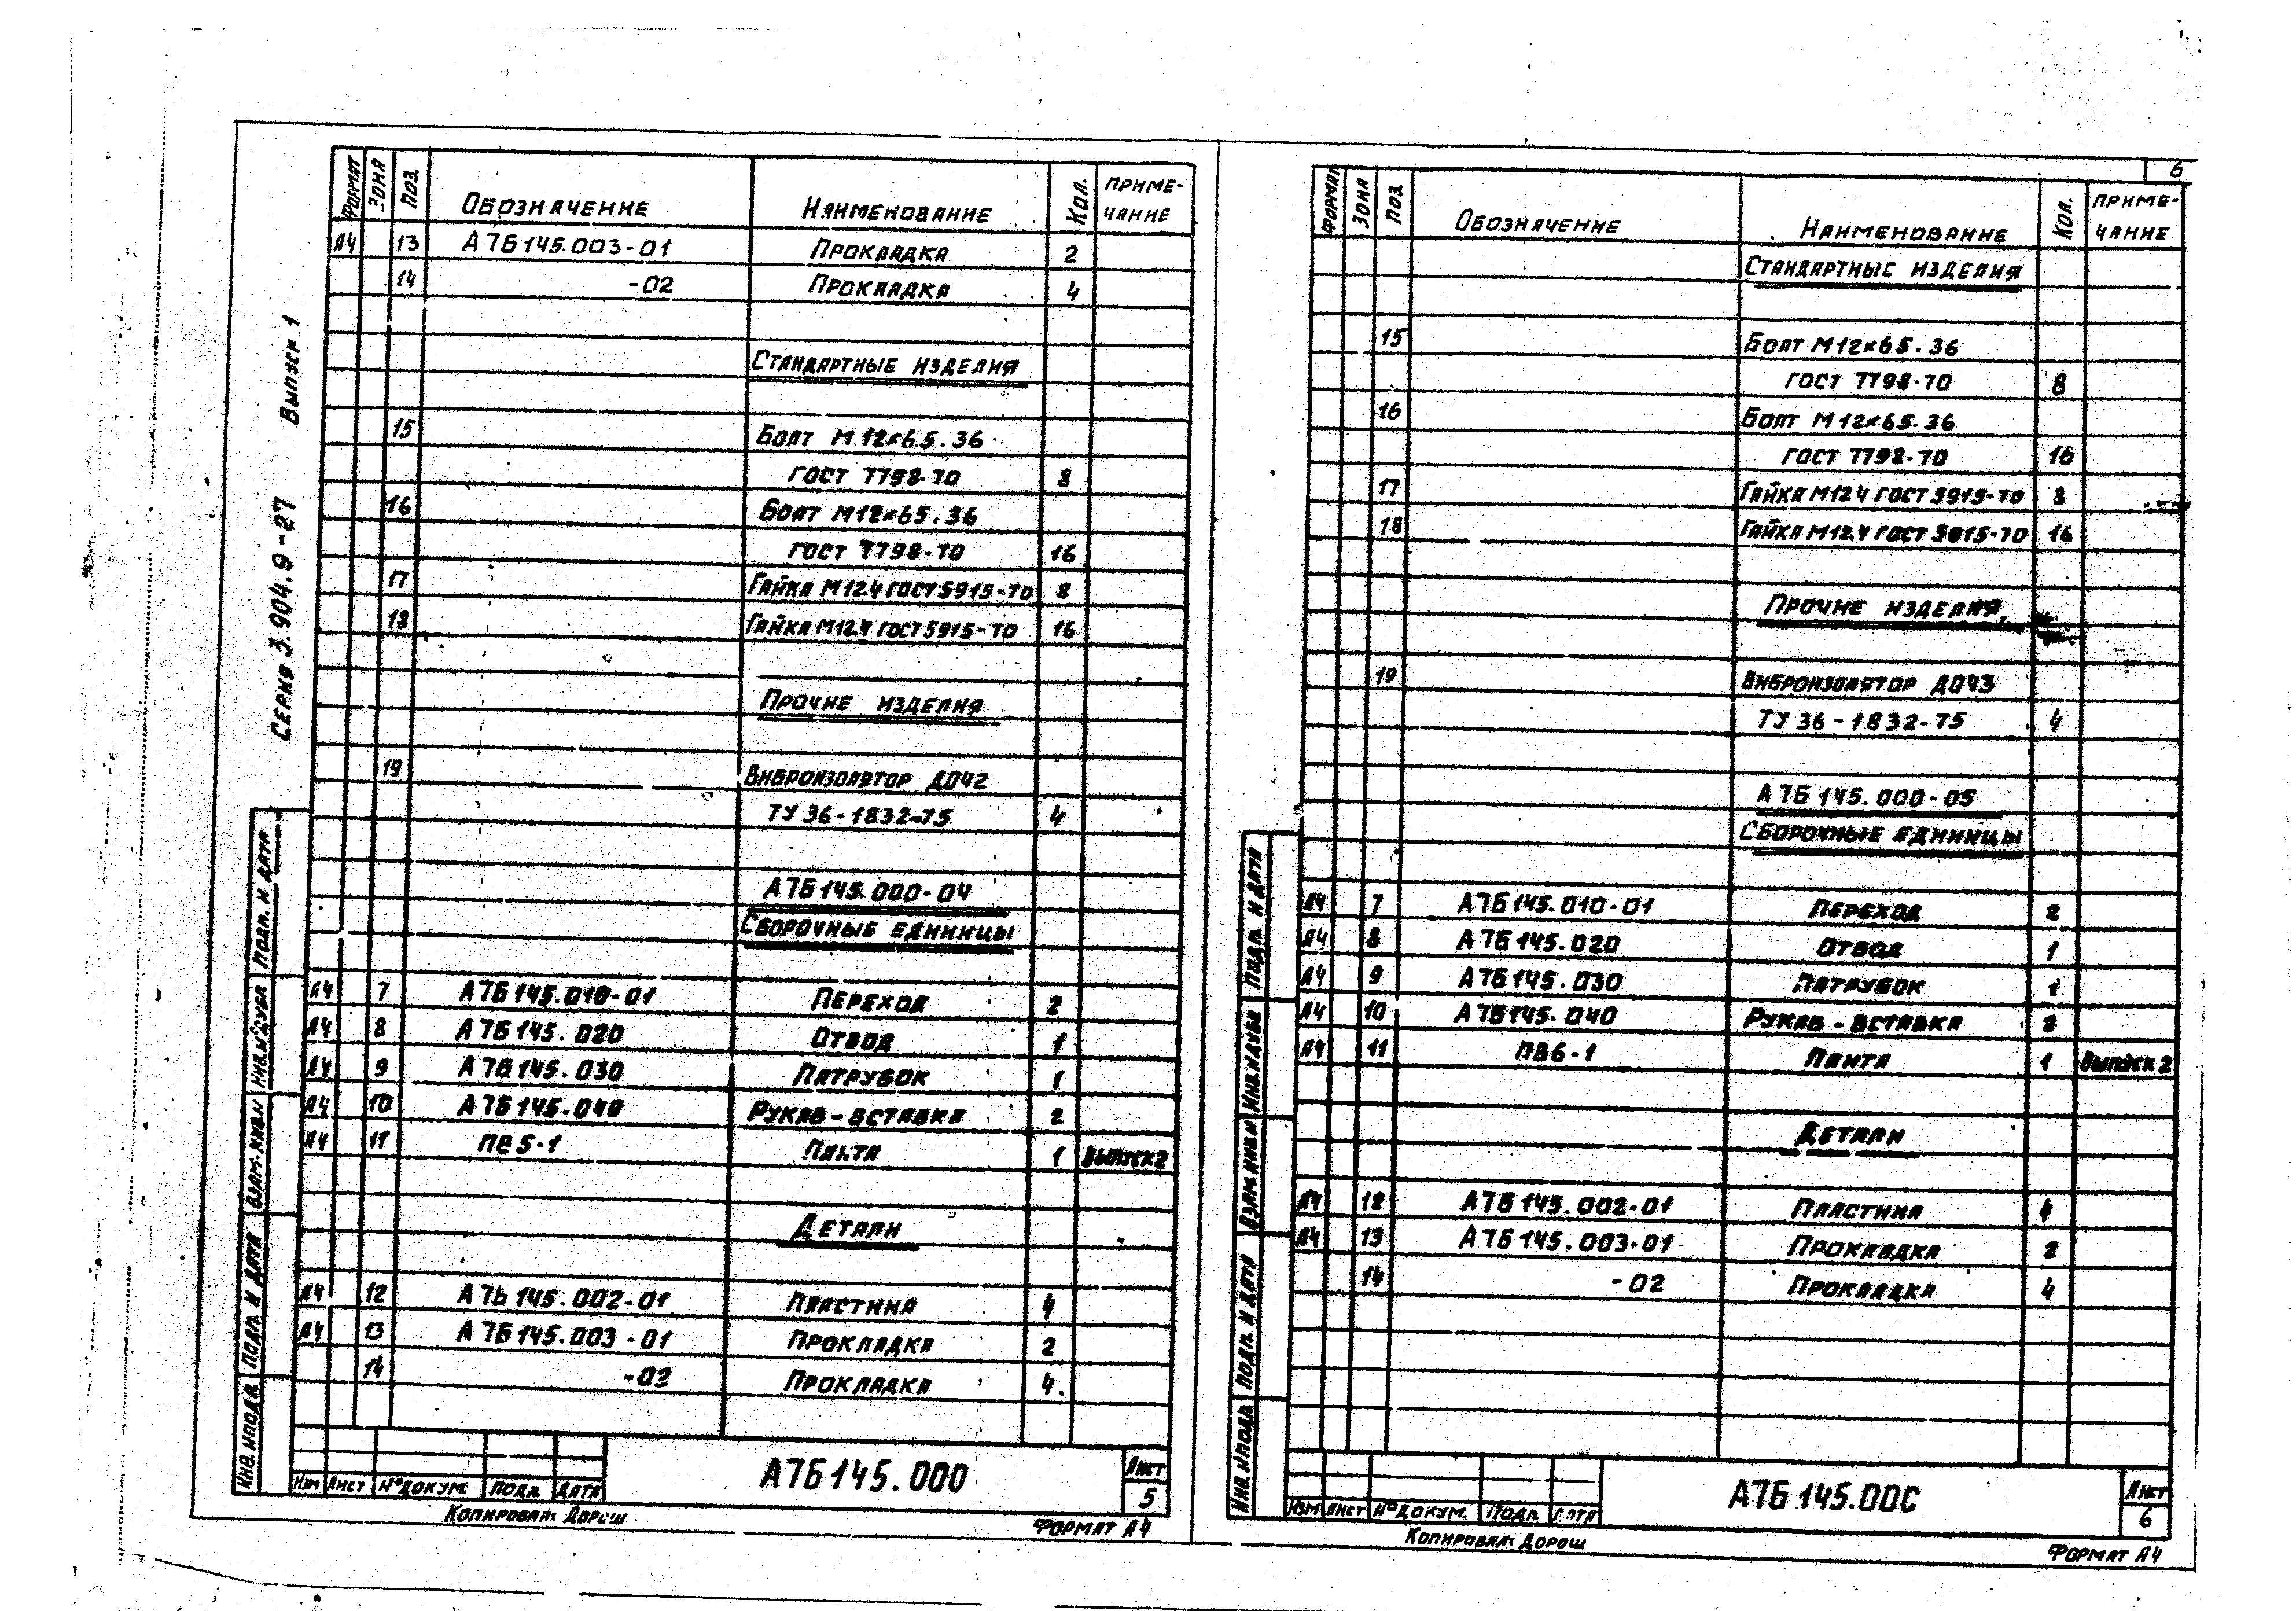 6
Серия 3.904.9-27 Выпуск 1
Формат Зона Поз. Обозначение Наименование Кол. Приме-чание
А4 13 А7Б145.003-01 Прокладка 2
14 -02 Прокладка 4
Стандартные изделия
15 Болт М12×65.36
ГОСТ 7798-70 8
16 Болт М12×65.36
ГОСТ 7798-70 16
17 Гайка М12.4 ГОСТ 5915-70 8
18 Гайка М12.4 ГОСТ 5915-70 16
Прочие изделия
19 Виброизолятор ДО42
ТУ 36-1832-75 4
А7Б145.000-04
Сборочные единицы
А4 7 А7Б145.010-01 Переход 2
А4 8 А7Б145.020 Отвод 1
А4 9 А7Б145.030 Патрубок 1
А4 10 А7Б145.040 Рукав-вставка 2
А4 11 ПВ5-1 Плита 1 Выпуск 2
Детали
А4 12 А7Б145.002-01 Пластина 4
А4 13 А7Б145.003-01 Прокладка 2
14 -02 Прокладка 4.
Подп. и дата
Инв.№дубл
Взам.инв.№
Подп. и дата
Инв.№подл.
Изм Лист №докум. Подп. Дата
А7Б145.000
Лист
5
Копировал: Дорош
Формат А4
Формат Зона Поз. Обозначение Наименование Кол. Приме-чание
Стандартные изделия
15 Болт М12×65.36
ГОСТ 7798-70 8
16 Болт М12×65.36
ГОСТ 7798-70 16
17 Гайка М12.4 ГОСТ 5915-70 8
18 Гайка М12.4 ГОСТ 5915-70 16
Прочие изделия
19 Виброизолятор ДО43
ТУ 36-1832-75 4
А7Б145.000-05
Сборочные единицы
А4 7 А7Б145.010-01 Переход 2
А4 8 А7Б145.020 Отвод 1
А4 9 А7Б145.030 Патрубок 1
А4 10 А7Б145.040 Рукав-вставка 2
А4 11 ПВ6-1 Плита 1 Выпуск 2
Детали
А4 12 А7Б145.002-01 Пластина 4
А4 13 А7Б145.003-01 Прокладка 2
14 -02 Прокладка 4
Подп. и дата
Инв.№дубл
Взам.инв.№
Подп. и дата
Инв.№подл.
Изм Лист №докум. Подп. Дата
А7Б145.000
Лист
6
Копировал: Дорош
Формат А4